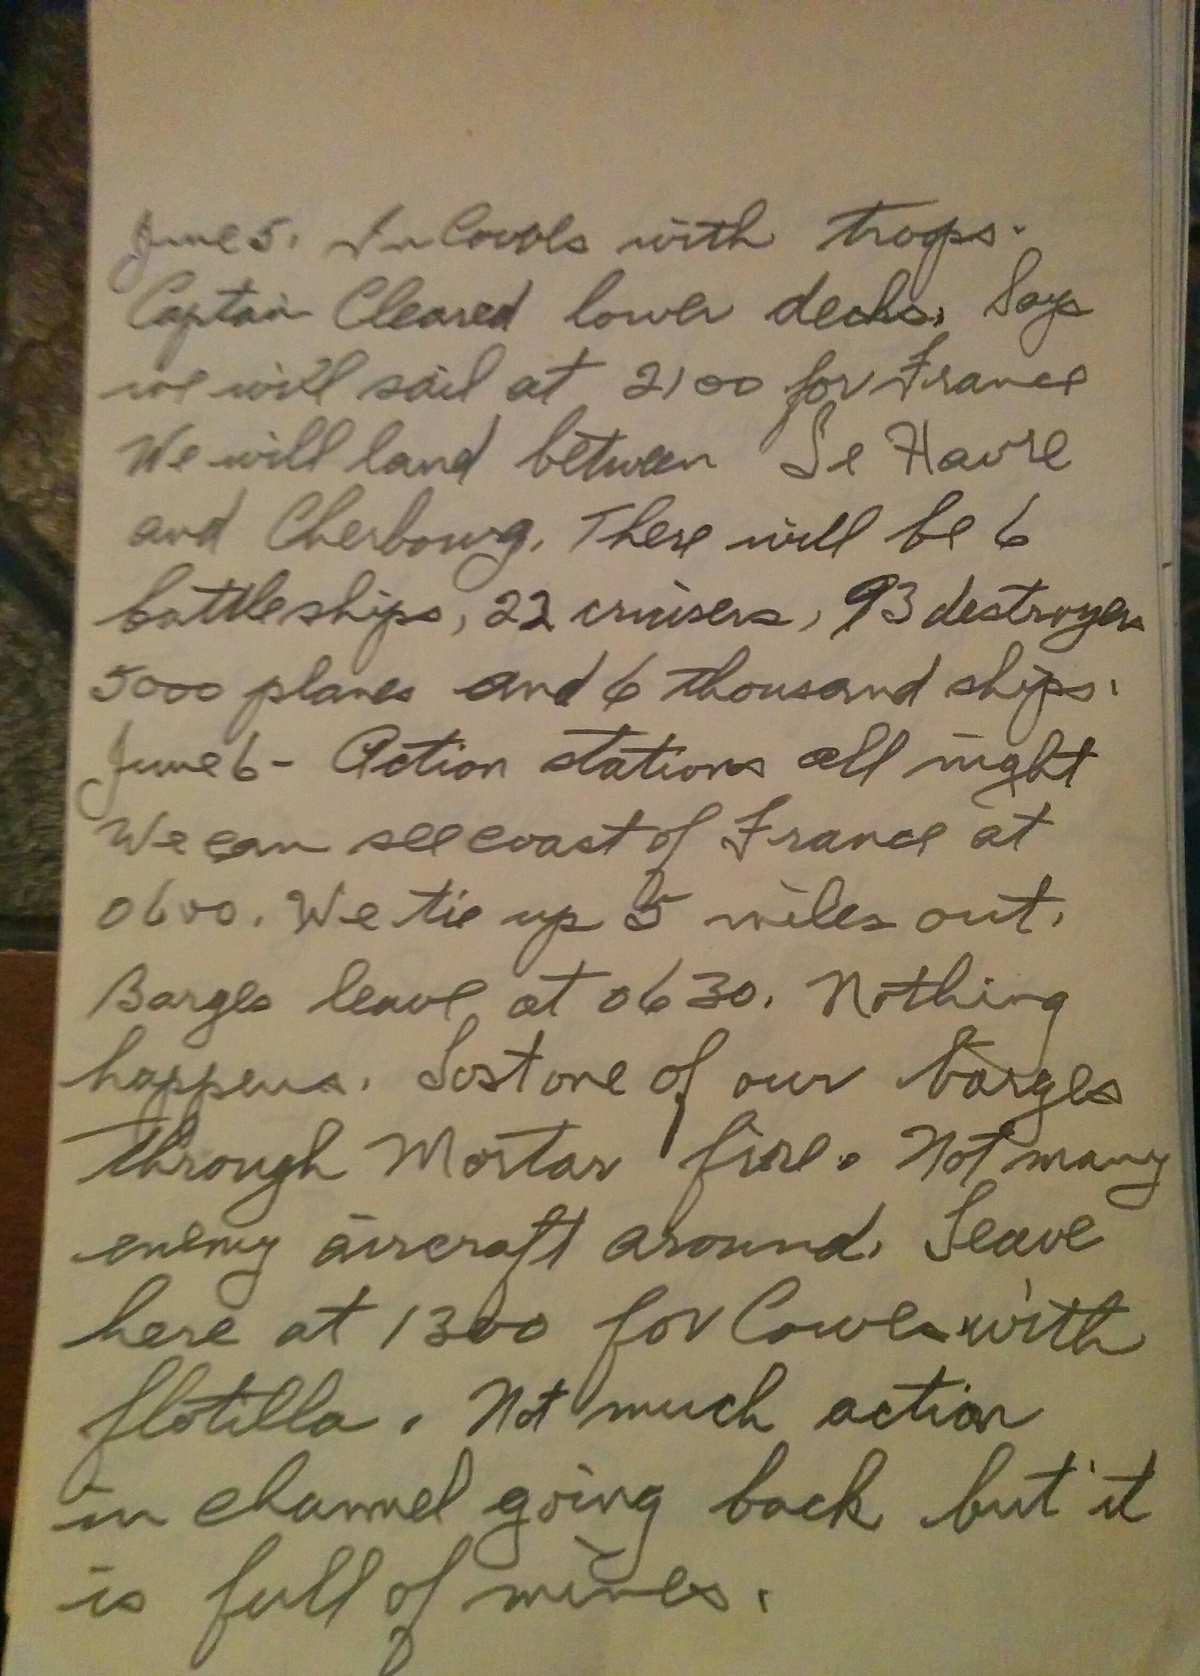 June 5. In Cowes with troops.
Captain Cleared lower decks. Says
we will sail at 2100 for France
We will land between Le Havre
and Cherbourg. There will be 6
battleships, 22 cruisers, 93 destroyers
5000 planes and 6 thousand ships.
June 6 - Action stations all night
We can see coast of France at
0600. We tie up 5 miles out.
Barges leave at 0630. Nothing
happens. Lost one of our barges
through Mortar fire. Not many
enemy aircraft around. Leave
here at 1300 for Cowes with
flotilla. Not much action
in channel going back but it
is full of mines.